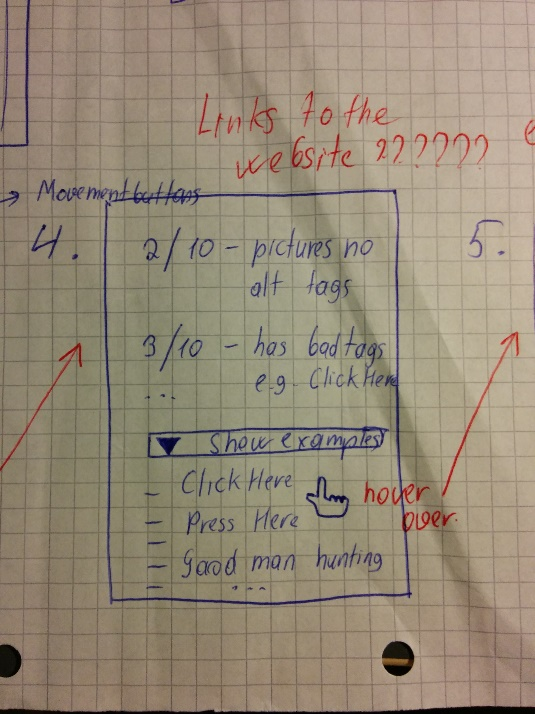 Links to the
website ??????
→ Movement buttons
4.
5.
2/10 - pictures no
alt tags
3/10 - has bad tags
e.g. Click Here
...
▼ Show examples
- Click Here
- Press Here
- Good man hunting
...
hover
over.